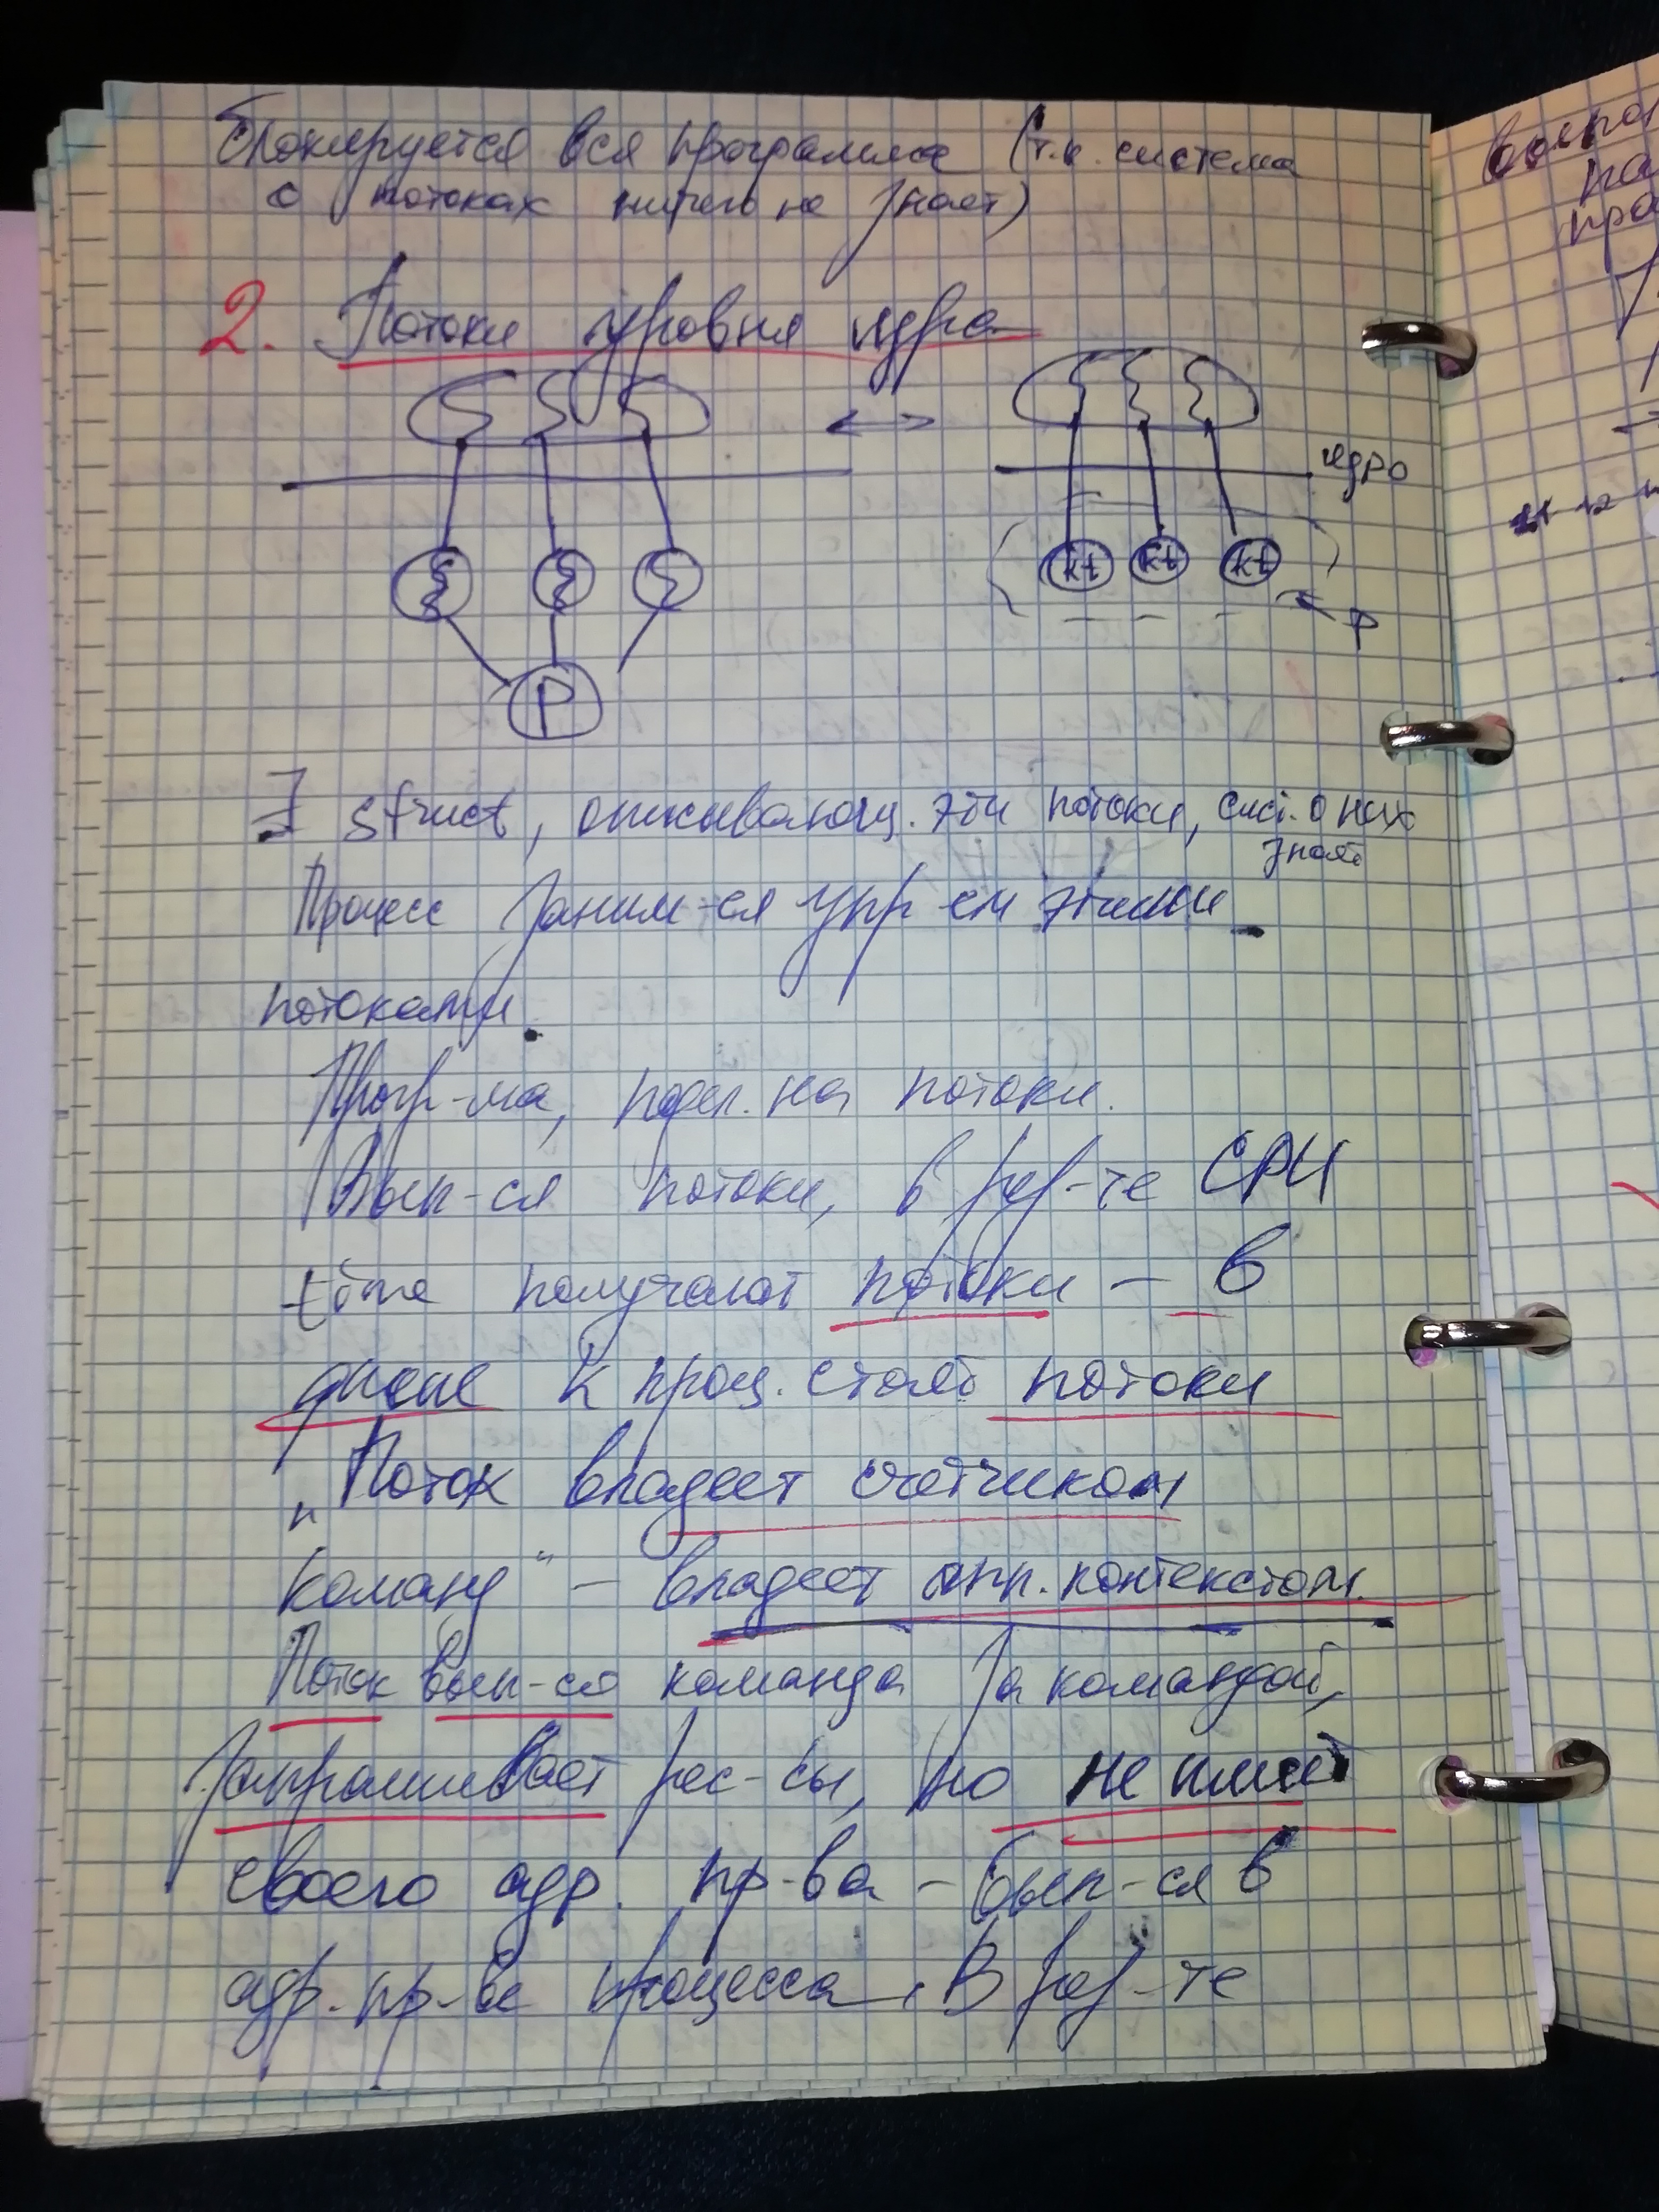 блокируется вся программа (т.к. система
о потоках ничего не знает)
2. Потоки уровня ядра
ядро
kt kt kt
P
P
∃ struct, описывающ. эти потоки, сист. о них
знает
Процесс заним-ся упр-ем этими
потоками.
Прогр-ма, подел. на потоки.
Вып-ся потоки, в рез-те CPU
time получают потоки – в
очереди к проц. стоят потоки
"Поток владеет счетчиком
команд" – владеет апп. контекстом.
Поток вып-ся команда за командой,
запрашивает рес-сы, но не имеет
своего адр. пр-ва – вып-ся в
адр. пр-ве процесса. В рез-те
вопро
на
про